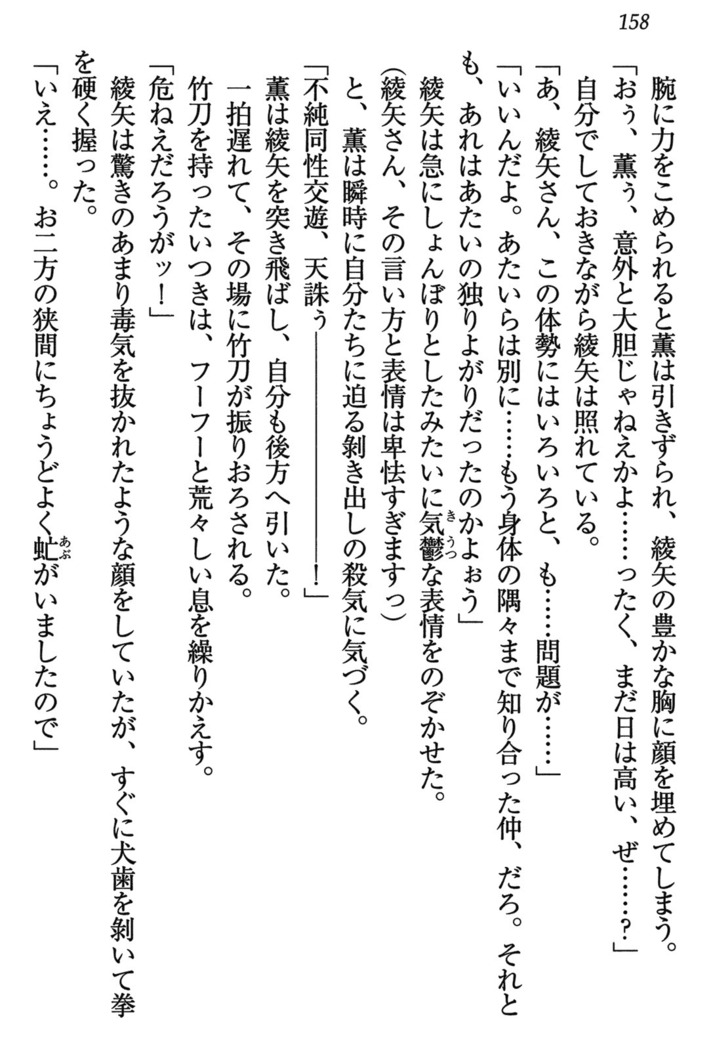 158
腕に力をこめられると薫は引きずられ、綾矢の豊かな胸に顔を埋めてしまう。
「おぅ、薫ぅ、意外と大胆じゃねえかよ……ったく、まだ日は高い、ぜ……？」
自分でしておきながら綾矢は照れている。
「あ、綾矢さん、この体勢にはいろいろと、も……問題が……」
「いいんだよ。あたいらは別に……もう身体の隅々まで知り合った仲、だろ。それと
も、あれはあたいの独りよがりだったのかよぉう」
綾矢は急にしょんぼりとしたみたいに気鬱な表情をのぞかせた。
（綾矢さん、その言い方と表情は卑怯すぎますっ）
と、薫は瞬時に自分たちに迫る剝き出しの殺気に気づく。
「不純同性交遊、天誅ぅ――――――！」
薫は綾矢を突き飛ばし、自分も後方へ引いた。
一拍遅れて、その場に竹刀が振りおろされる。
竹刀を持ったいつきは、フーフーと荒々しい息を繰りかえす。
「危ねえだろうがッ！」
綾矢は驚きのあまり毒気を抜かれたような顔をしていたが、すぐに犬歯を剝いて拳
を硬く握った。
「いえ……。お二方の狭間にちょうどよく虻がいましたので」